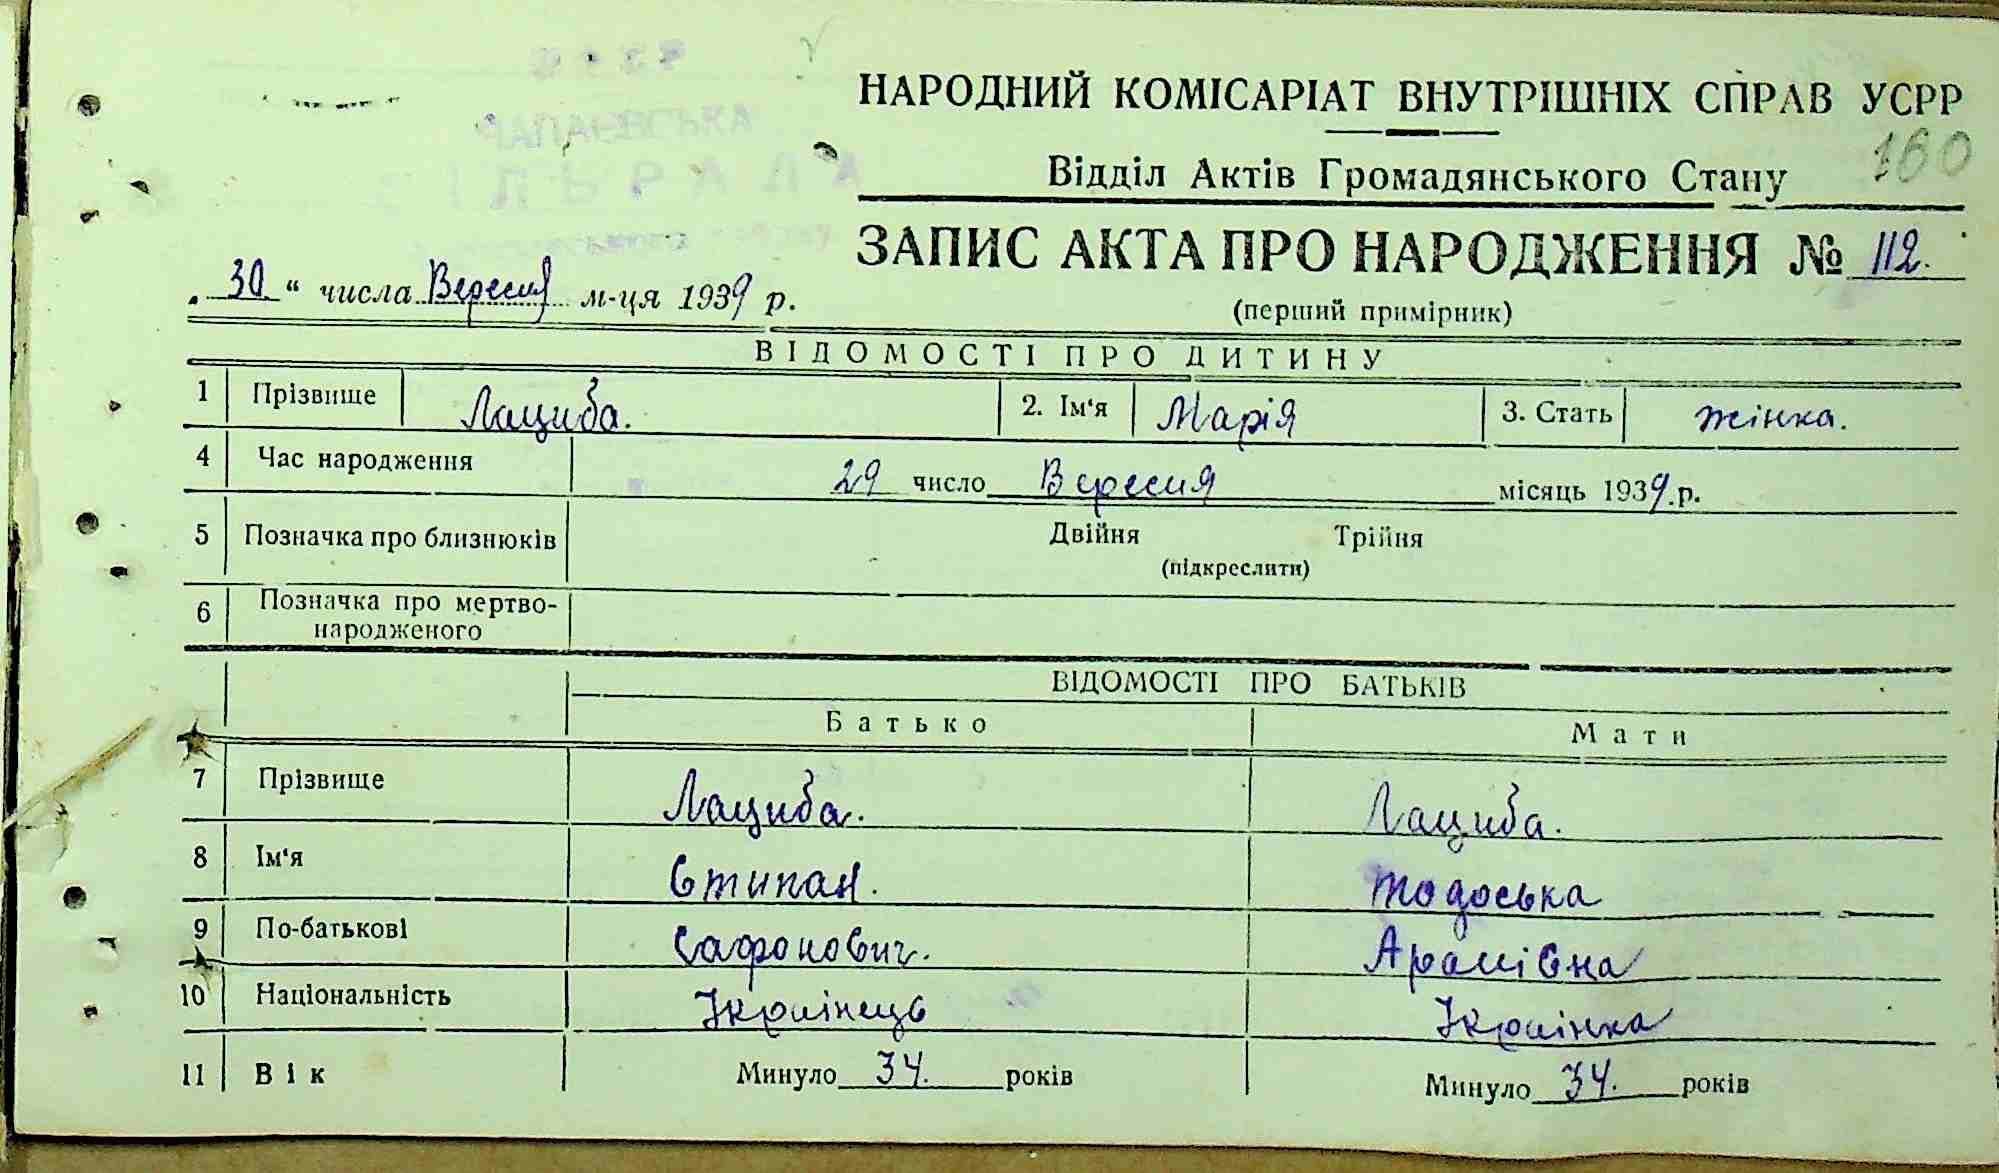 НАРОДНИЙ КОМІСАРІАТ ВНУТРІШНІХ СПРАВ УСРР
160
Відділ Актів Громадянського Стану
ЧАПАЄВСЬКА
СІЛЬРАДА
ЗАПИС АКТА ПРО НАРОДЖЕННЯ № 112.
„ 30 “ числа Вересня м-ця 1939 р.
(перший примірник)
ВІДОМОСТІ ПРО ДИТИНУ
1 Прізвище Лациба. 2. Ім‘я Марія 3. Стать жінка.
4 Час народження 29 число Вересня місяць 1939.р.
5 Позначка про близнюків Двійня Трійня
(підкреслити)
6 Позначка про мертво-
народженого
ВІДОМОСТІ ПРО БАТЬКІВ
Батько Мати
7 Прізвище Лациба. Лациба.
8 Ім‘я Стипан. Тодоська
9 По-батькові Сафонович.
10 Національність Українець Українка
11 Вік Минуло 34. років Минуло 34. років